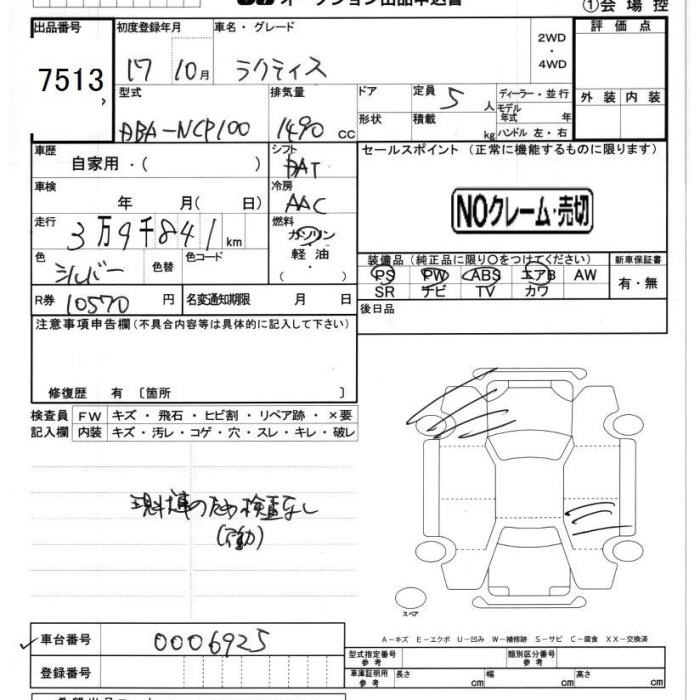 オークション出品申込書
①会場控
出品番号 初度登録年月 車名・グレード 2WD・4WD 評価点
7513 17 10月 ラクティス
型式 排気量 ドア 定員 5人 ディーラー・並行 外装 内装
DBA-NCP100 1490cc 形状 積載 kg モデル年式 年 ハンドル 左・右
車歴 自家用・( ) シフト AT セールスポイント (正常に機能するものに限ります)
車検 年 月( 日) 冷房 AAC
NOクレーム・売切
走行 3万9千841km 燃料 ガソリン・軽油・( )
色 シルバー 色替 色コード
装備品 (純正品に限り○をつけてください) 新車保証書
PS PW ABS エアB AW 有・無
SR ナビ TV カワ
R券 10570円 名変通知期限 月 日
後日品
注意事項申告欄 (不具合内容等は具体的に記入して下さい)
修復歴 有 〔箇所 〕
検査員 FW キズ・飛石・ヒビ割・リペア跡・×要
記入欄 内装 キズ・汚レ・コゲ・穴・スレ・キレ・破レ
現状車のため検査なし
スペア
A-キズ E-エクボ U-凹み W-補修跡 S-サビ C-腐食 XX-交換済
車台番号 0006925
型式指定番号 参考 類別区分番号 参考
登録番号
車庫証明用 参考 長さ cm 幅 cm 高さ cm